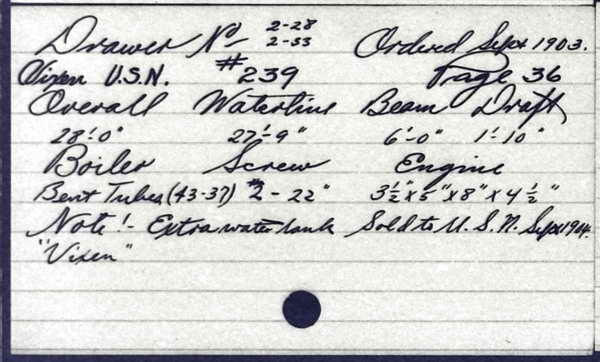 Drawer No 2-28 2-33 Ordered Sept 1903.
Vixen U.S.N. #239 Page 36
Overall Waterline Beam Draft
28'-0" 27'-9" 6'-0" 1'-10"
Boiler Screw Engine
Bent Tubes (43-37) #2 - 22" 3½" x 5" x 8" x 4½"
Note!- Extra water tank Sold to U.S.N. Sept 1904.
"Vixen"